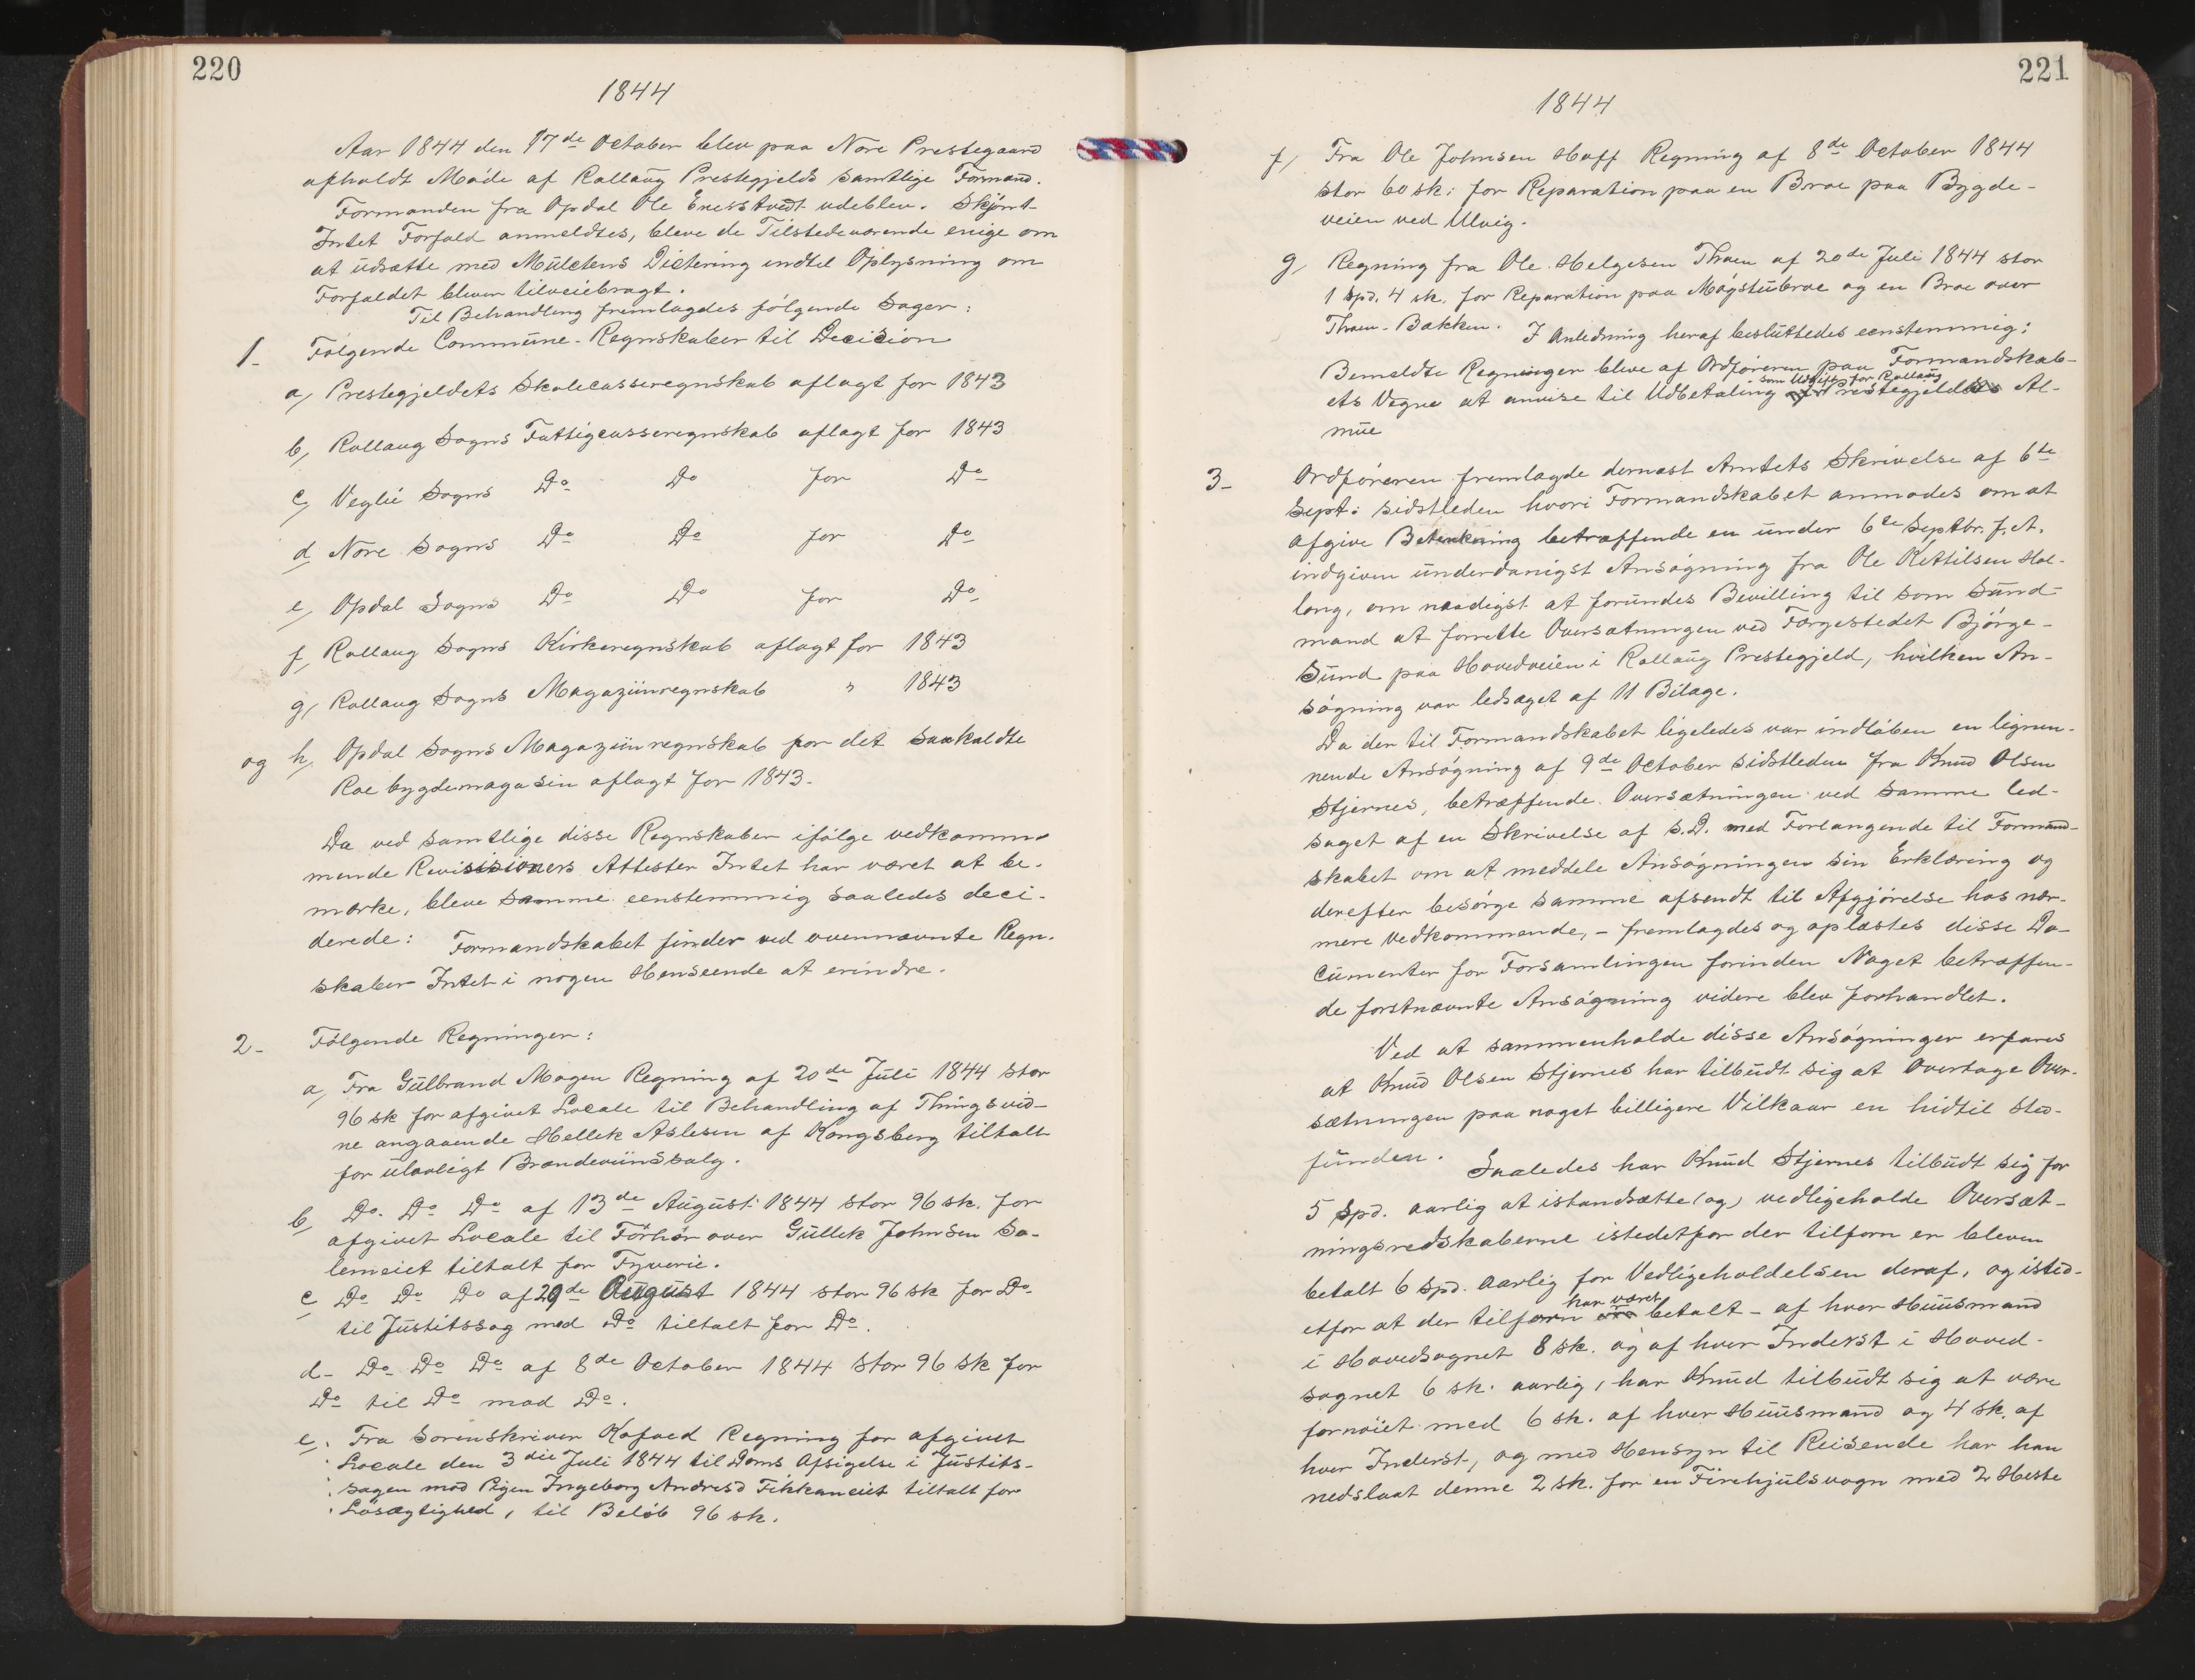 220
1844
Aar 1844 den 17de October blev paa Nore Prestegaard
afholdt Møde af Rollaug Prestegjelds samtlige Formænd.
Formanden fra Opdal Ole Enesstvedt udeblev. Skjønt
Intet Forfald anmeldtes, bleve de Tilstedeværende enige om
at udsætte med Mulctens Dictering indtil Oplysning om
Forfaldet bliver tilveiebragt.
Til Behandling fremlagdes følgende Sager:
1- Følgende Commune-Regnskaber til Decision
a, Prestegjeldets Skolecasseregnskab aflagt for 1843
b, Rollaug Sogns Fattigcasseregnskab aflagt for 1843
c, Veglie Sogns Do Do for Do
d Nore Sogns Do Do for Do
e, Opdal Sogns Do Do for Do
f, Rollaug Sogns Kirkeregnskab aflagt for 1843
g, Rollaug Sogns Magaziinregnskab " 1843
og h, Opdal Sogns Magaziinregnskab for det saakaldte
Roe bygdemagasin aflagt for 1843.
Da ved samtlige disse Regnskaber ifølge vedkomm-
mende Revisisioners Attester Intet har været at be-
mærke, bleve samme eenstemmig saaledes deci-
derede: Formandskabet finder ved ovennævnte Regn-
skaber Intet i nogen Henseende at erindre.
2- Følgende Regninger:
a, Fra Gulbrand Mogen Regning af 20de Juli 1844 stor
96 sk for afgivet Locale til Behandling af Thingsvid-
ne angaaende Hellik Aslesen af Kongsberg tiltalt
for ulovligt Brændeviinssalg.
b, Do. Do Do af 13de August 1844 stor 96 sk. for
afgivet Locale til Forhør over Gullik Johnsen So-
lemeiet tiltalt for Tyverie.
c Do Do Do af 29de August 1844 stor 96 sk for Do
til Justitssag mod Do tiltalt for Do.
d- Do Do Do af 8de October 1844 stor 96 sk for
Do til Do mod Do.
e. Fra Sorenskriver Kofoed Regning for afgivet
Locale den 3die Juli 1844 til Doms Afsigelse i Justits-
sagen mod Pigen Ingeborg Andresd Fikkaneiet tiltalt for
Løsagtighed, til Beløb 96 sk.
221
1844
f, Fra Ole Johnsen Hoff Regning af 8de October 1844
stor 60 sk: for Reparation paa en Broe paa Bygde-
veien ved Ulvig.
g, Regning fra Ole Helgesen Thoen af 20de Juli 1844 stor
1 Spd. 4 sk. for Reparation paa Mogstubroe og en Broe over
Thoen-Bækken. I Anledning heraf besluttedes eenstemmig:
Bemeldte Regninger bleve af Ordføreren paa Formandskab-
som Udgift for Rollaug
ets Vegne at anvise til Udbetaling restegjelds Al-
mue
3- Ordføreren fremlagde dernæst Amtets Skrivelse af 6te
Sept: sidstleden hvori Formandskabet anmodes om at
afgive Betenkning betræffende en under 6te Septbr. f. A.
indgiven underdanigst Ansøgning fra Ole Kittilsen Hol-
long, om naadigst at forundes Bevilling til som Sund-
mand at forrette Oversætningen ved Færgestedet Bjørge-
Sund paa Hovedveien i Rollaug Prestegjeld, hvilken An-
søgning var ledsaget af 11 Bilage.
Da der til Formandskabet ligeledes var indløben en lignen-
nende Ansøgning af 9de October sidstleden fra Knud Olsen
Stjernes, betræffende Oversætningen ved samme led-
saget af en Skrivelse af S.D. med Forlangende til Formand-
skabet om at meddele Ansøgningen sin Erklæring og
derefter besørge samme afsendt til Afgjørelse hos nær-
mere Vedkommende, - fremlagdes og oplæstes disse Do-
cumenter for Forsamlingen forinden Noget betræffen-
de førstnævnte Ansøgning videre blev forhandlet.
Ved at sammenholde disse Ansøgninger erfares
at Knud Olsen Stjernes har tilbudt sig at Overtage Over-
sætningen paa noget billigere Vilkaar en hidtil sted-
funden. Saaledes har Knud Stjernes tilbudt sig for
5 Spd. aarlig at istandsætte (og) vedligeholde Oversæt-
ningsredskaberne istedetfor der tilforn er bleven
betalt 6 Spd. aarlig for Vedligeholdelsen deraf, og isted-
har været
etfor at der tilforn betalt - af hver Huusmand
i Hovedsognet 8 sk. og af hver Inderst i Hoved-
sognet 6 sk. aarlig, har Knud tilbudt sig at være
fornøiet med 6 sk. af hver Huusmand og 4 sk. af
hver Inderst, og med Hensyn til Reisende har han
nedslaat denne 2 sk. for en Firehjulsvogn med 2 Heste